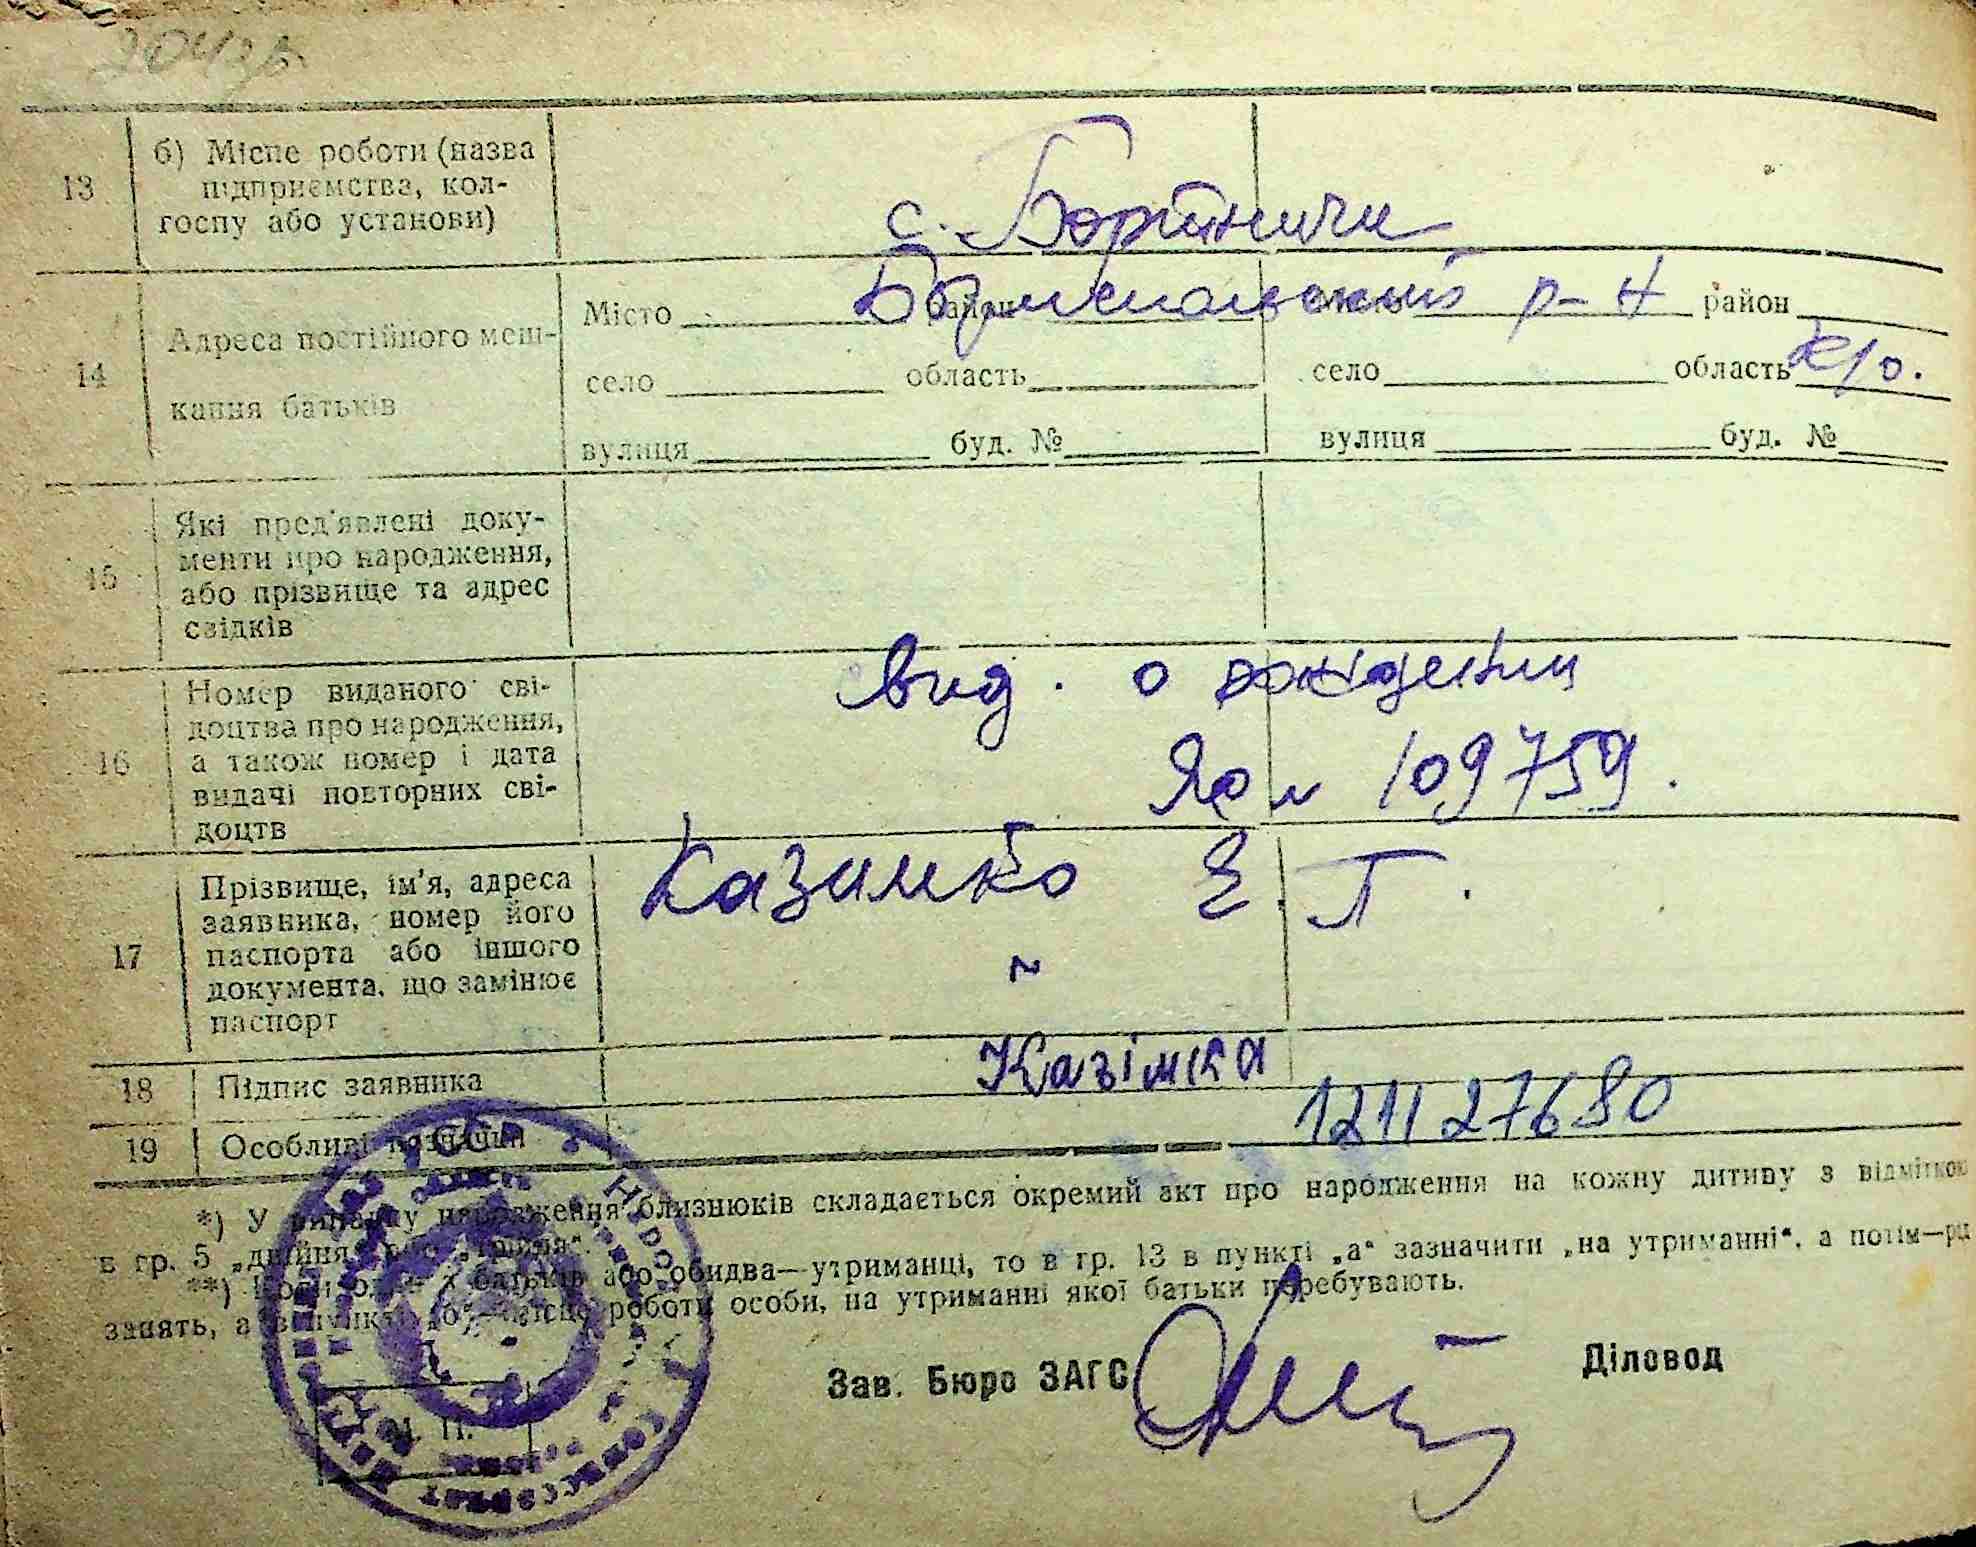 13
б) Місце роботи (назва
підприємства, кол-
госпу або установи)
с. Бортничи
14
Адреса постійного меш-
кання батьків
Бориспольский р-н
Місто район район
село область село область К/о.
вулиця буд. № вулиця буд. №
15
Які пред'явлені доку-
менти про народження,
або прізвище та адрес
свідків
16
Номер виданого сві-
доцтва про народження,
а також номер і дата
видачі повторних сві-
доцтв
вид. о рождении
109759.
17
Прізвище, ім'я, адреса
заявника, номер його
паспорта або іншого
документа, що замінює
паспорт
Казимко Е. П.
18
Підпис заявника
Казімка
19
Особливі
1211 27680
*) У випадку народження близнюків складається окремий акт про народження на кожну дитину з відміткою
в гр. 5 „двійня“
або обидва—утриманці, то в гр. 13 в пункті „а“ зазначити „на утриманні“, а потім—рід
занять, а в пункті роботи особи, на утриманні якої батьки перебувають.
Зав. Бюро ЗАГС
Діловод
М. П.